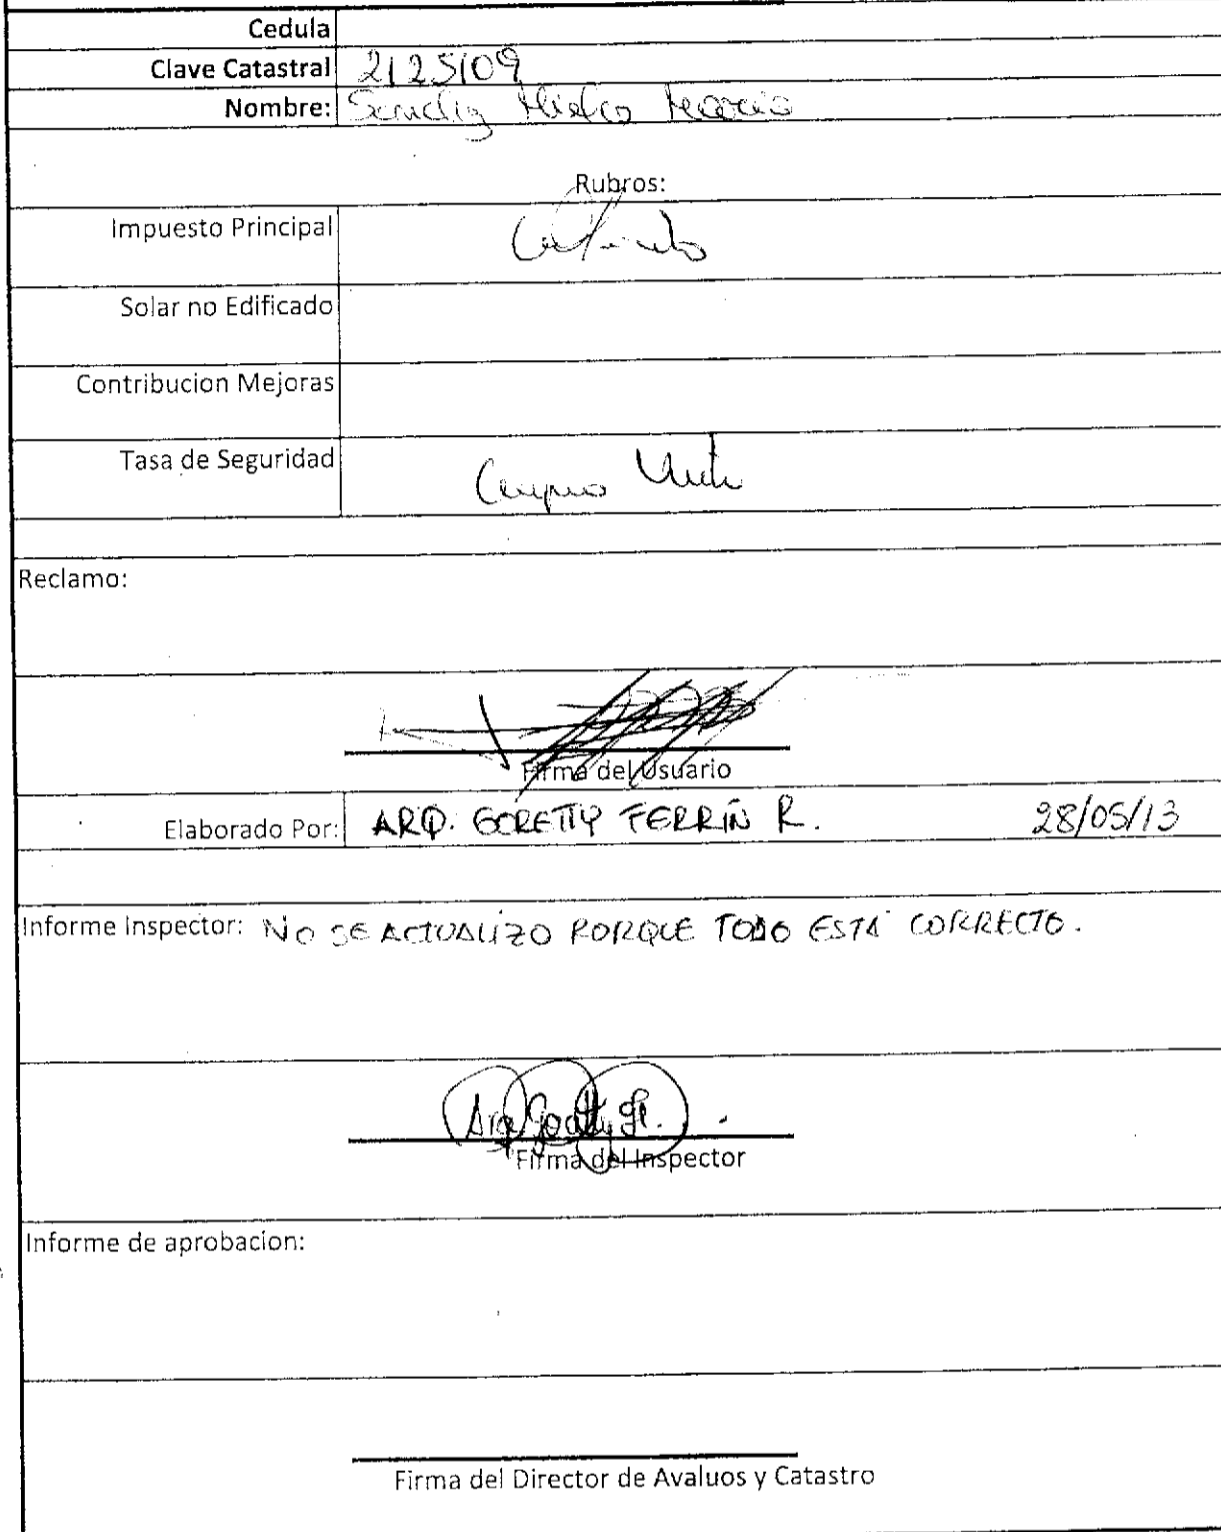 Cedula
Clave Catastral 2125109
Nombre:
Rubros:
Impuesto Principal
Solar no Edificado
Contribucion Mejoras
Tasa de Seguridad
Reclamo:
Firma del Usuario
Elaborado Por: ARQ. GORETTY FERRÍN R. 28/05/13
Informe Inspector: NO SE ACTUALIZO PORQUE TODO ESTÁ CORRECTO.
Arq. Goretty
Firma del Inspector
Informe de aprobacion:
Firma del Director de Avaluos y Catastro